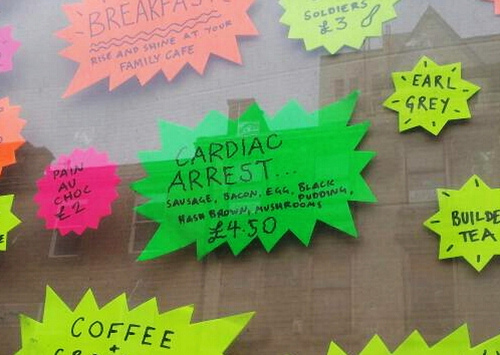 BREAKFAST
RISE AND SHINE AT YOUR
FAMILY CAFE
SOLDIERS
£3
EARL
GREY
PAIN
AU
CHOC
£2
CARDIAC
ARREST...
SAUSAGE, BACON, EGG, BLACK PUDDING,
HASH BROWN, MUSHROOMS
£4.50
BUILDE
TEA
COFFEE
+